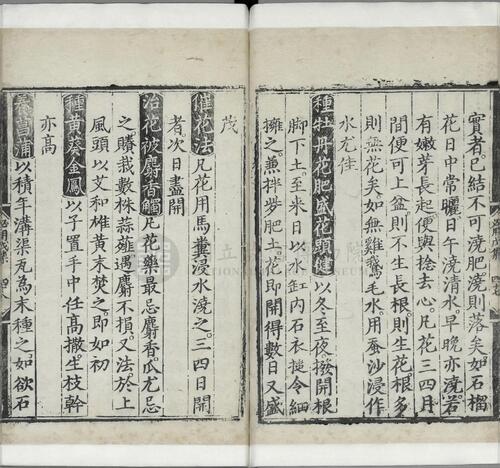 實者已結不可澆肥澆則落矣如石榴
花日中常曬日午澆清水早晚亦澆若
有嫩芽長起便與捻去心凡花三四月
間便可上盆則不生長根則生花根多
則無花矣如無雞鵞毛水用蚕沙浸作
水尤佳
種牡丹花肥盛花顆健以冬至夜撥開根
脚下土至来日以水缸内石衣搥令細
擁之兼拌夛肥土花即開得數日又盛
茂
催花法凡花用馬糞浸水澆之三四日開
者次日盡開
治花被麝香觸凡花藥最忌麝香瓜尤忌
之贃栽數株蒜薤遇麝不損又法於上
風頭以艾和雄黄末焚之即如初
種黄葵金鳳以子置手中任高撒生枝幹
亦髙
昌蒲以積年溝渠瓦為末種之如欲石